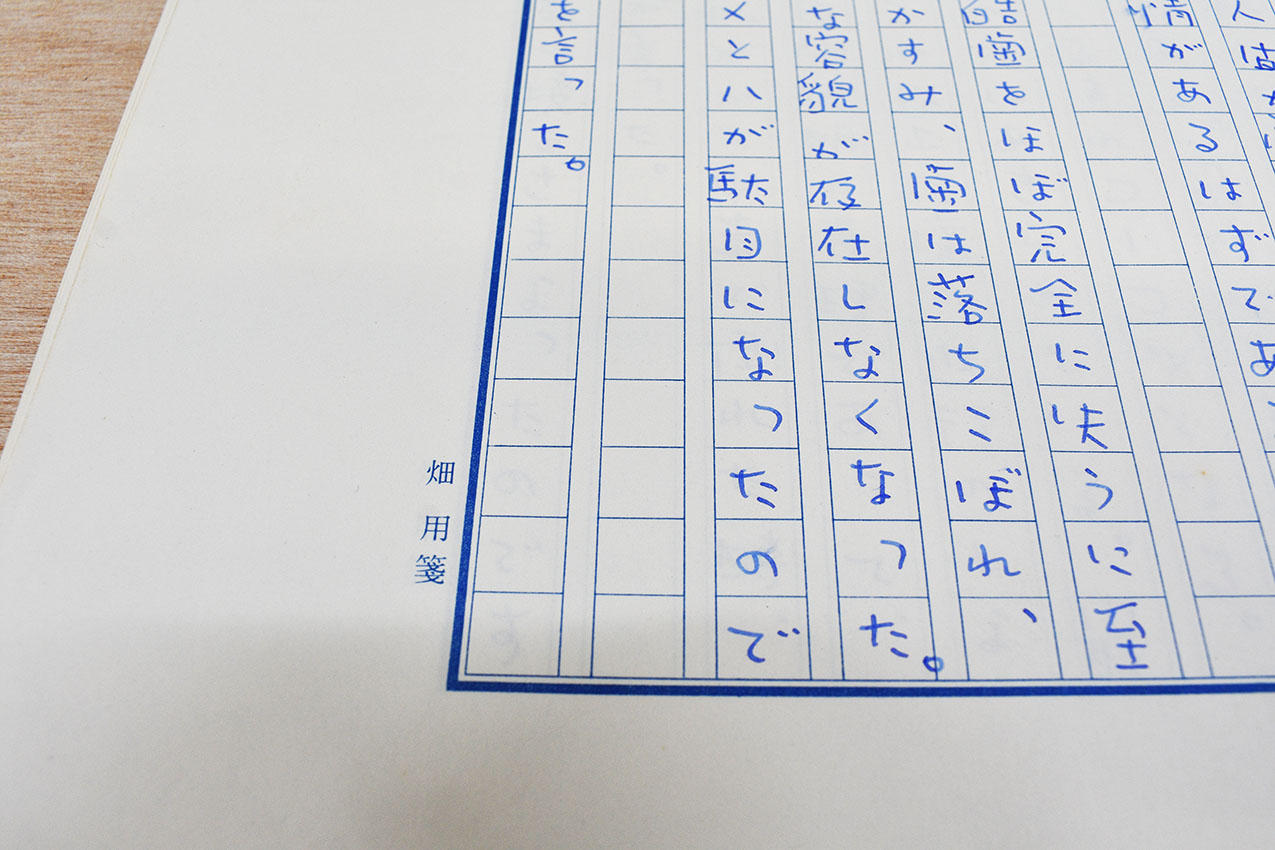 人
情があるはずであ
皓歯をほぼ完全に失うに至
かすみ、歯は落ちこぼれ、
な容貌が存在しなくなった。
メとハが駄目になったので
を言った。
畑用箋